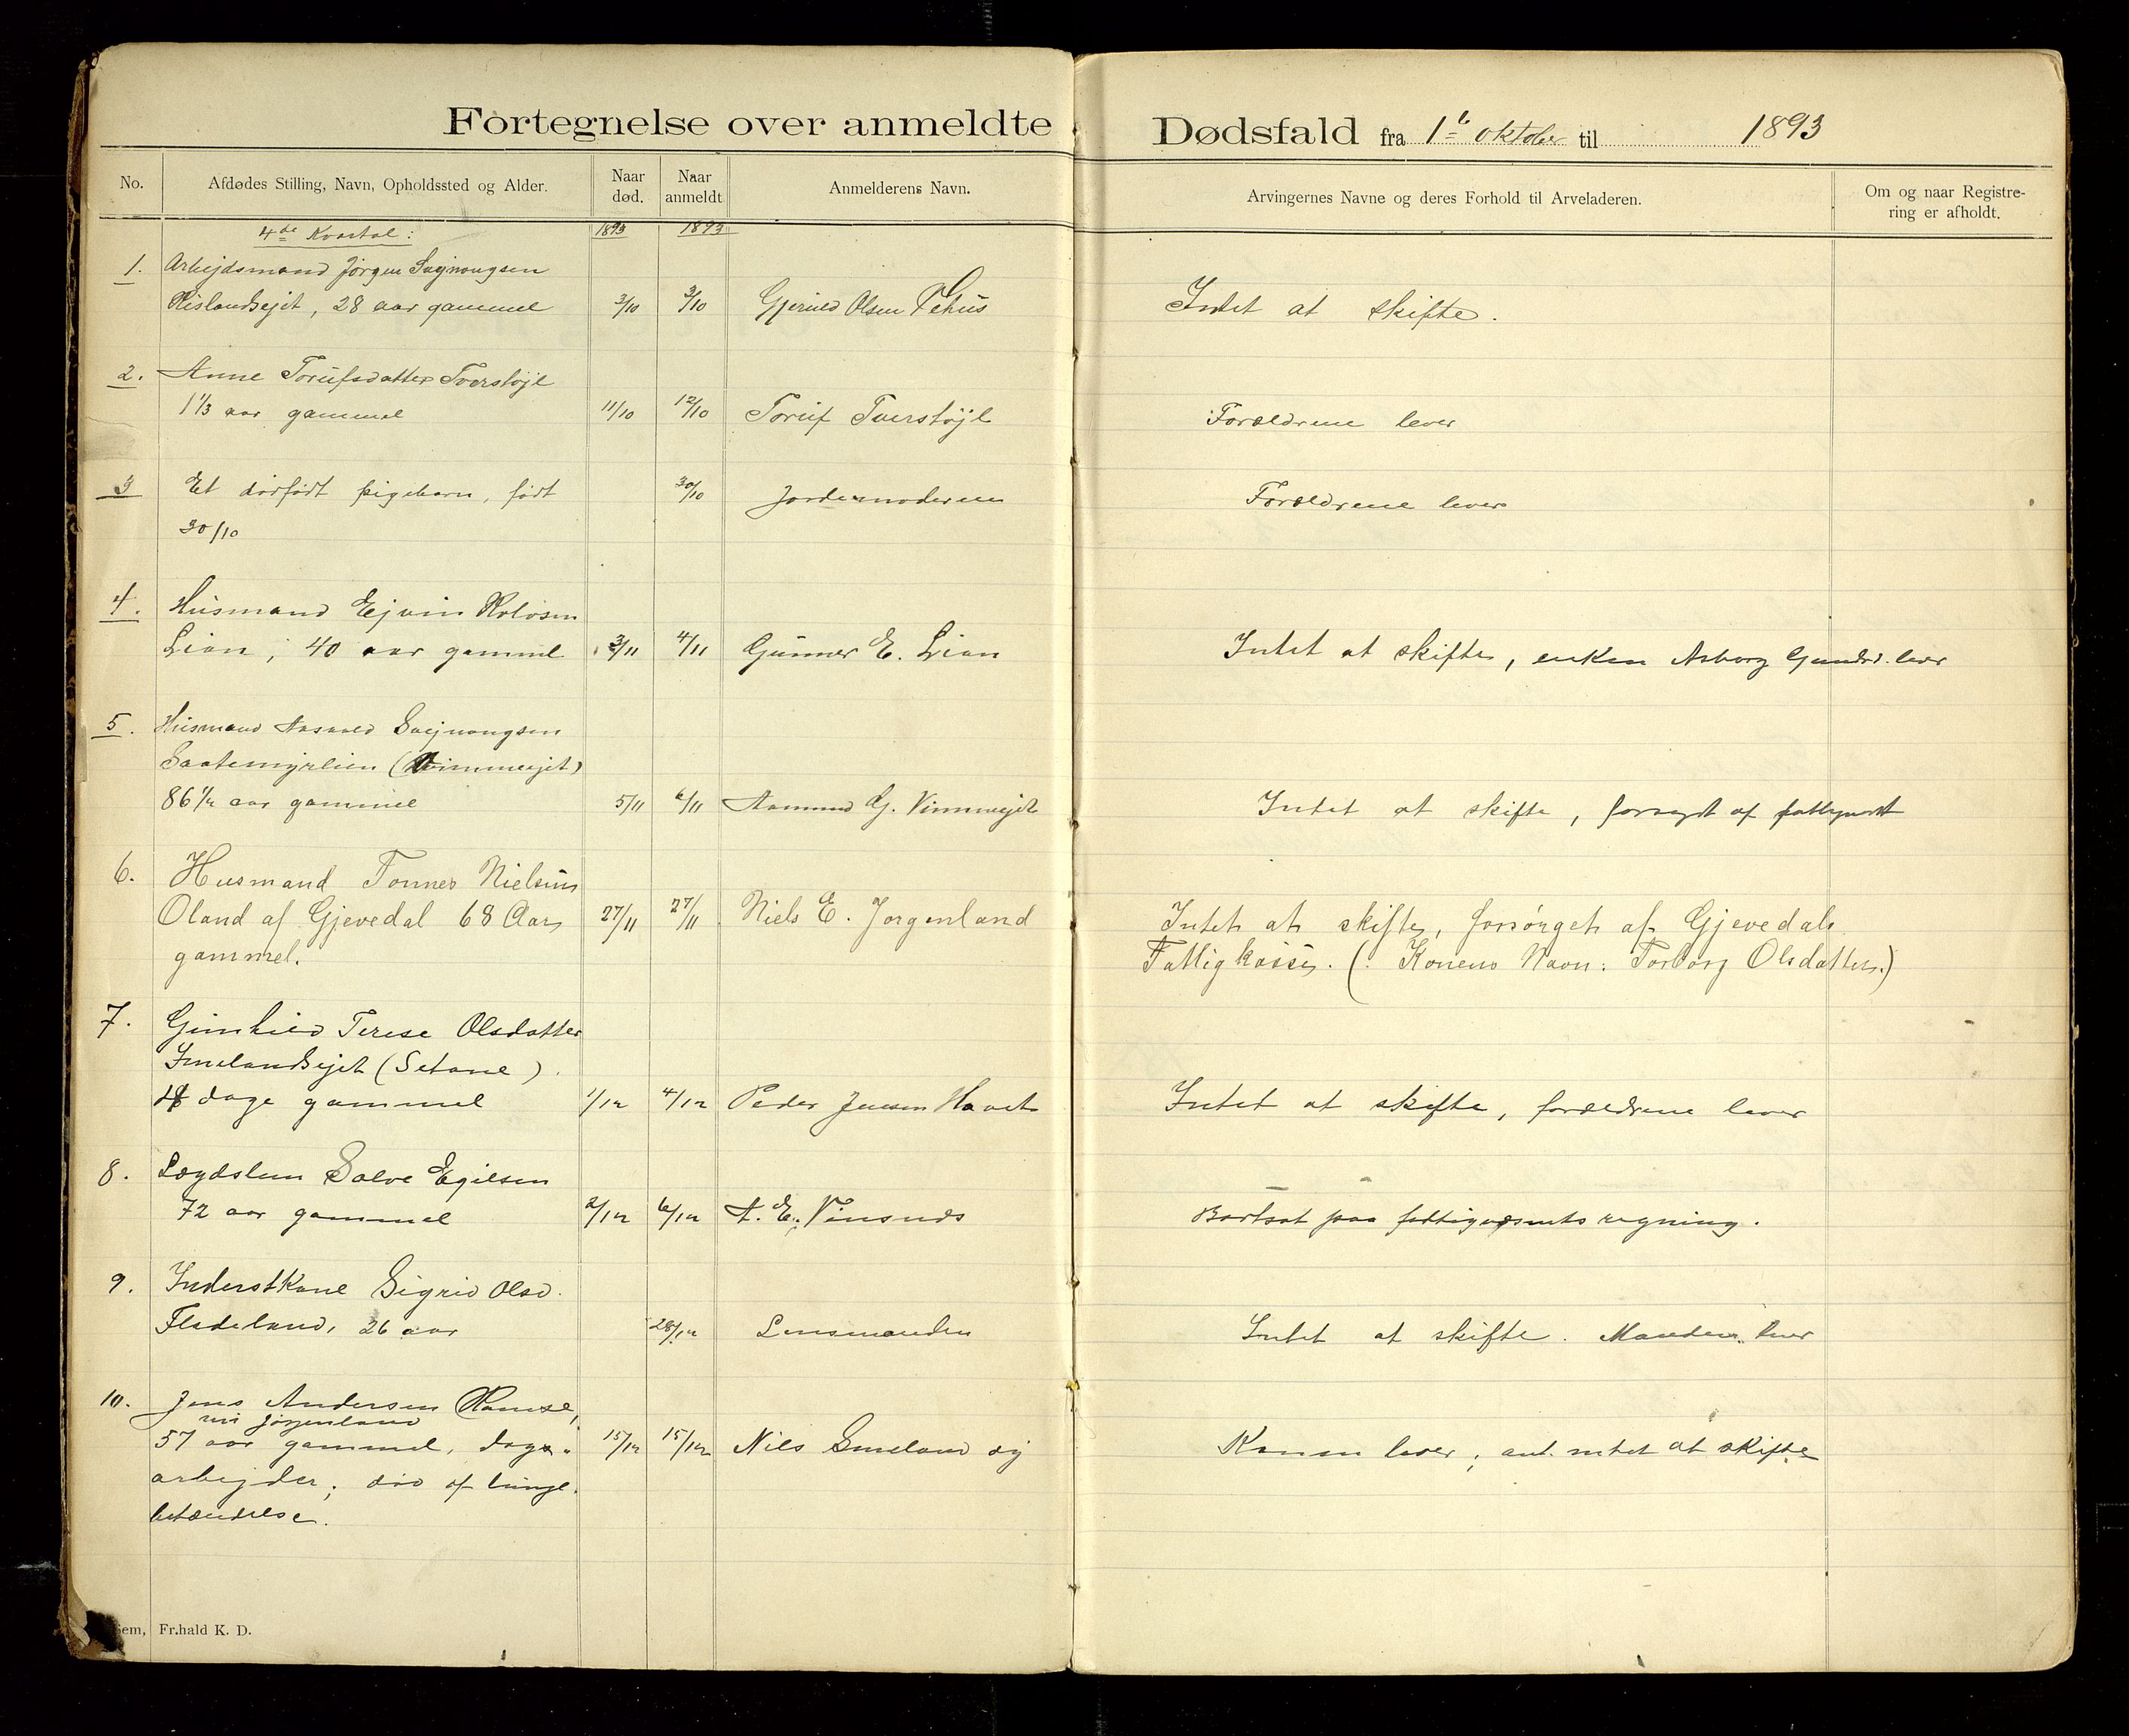 Fortegnelse over anmeldte Dødsfald fra 1ˢᵗ oktober til 1893
No. Afdødes Stilling, Navn, Opholdssted og Alder. Naar død. Naar anmeldt Anmelderens Navn. Arvingernes Navne og deres Forhold til Arveladeren. Om og naar Registrering er afholdt.
4de Kvartal: 1893 1893
1. Arbejdsmand Jörgen
Rislandsejet, 28 aar gammel 3/10 3/10 Olsen Intet at skifte.
2. Anne
1 1/3 aar gammel 11/10 12/10 Forældrene lever
3 Et dödfödt pigebarn, födt 30/10 Jordemoderen Forældrene lever
30/10
4. Husmand Ejvin
Lien, 40 aar gammel 3/11 4/11 Gunner E. Lien Intet at skifte, enken Asborg lever
5. Husmand
(Vimmeejet)
86 1/2 aar gammel 5/11 6/11 Aamund G. Intet at skifte, af
6. Husmand Tonnes Nielsen
Oland af Gjevedal 68 Aar 27/11 27/11 Niels E. Jorgenland Intet at skifte, forsörget af Gjevedals
gammel. Fattigkasse. (: Konens Navn: Torborg Olsdatter.)
7. Gunhild Terese Olsdatter
Smelandsejet (Setane).
dage gammel 1/12 4/12 Peder Jensen Intet at skifte, forældrene lever
8. Lægdslem Salve Egilsen
72 aar gammel 2/12 6/12 Bortsat paa fattigvæsenets regning.
9. Inderstkone Sigrid Olsd.
26 aar 28/12 Lensmanden Intet at skifte. Manden lever
10. Jens Andersen Ramse,
Jörgenland
57 aar gammel, dag- 15/12 15/12 Nils Smeland Konen lever; ant. intet at skifte
arbejder; död af lunge-
betændelse.
Sem, Fr.hald K. D.